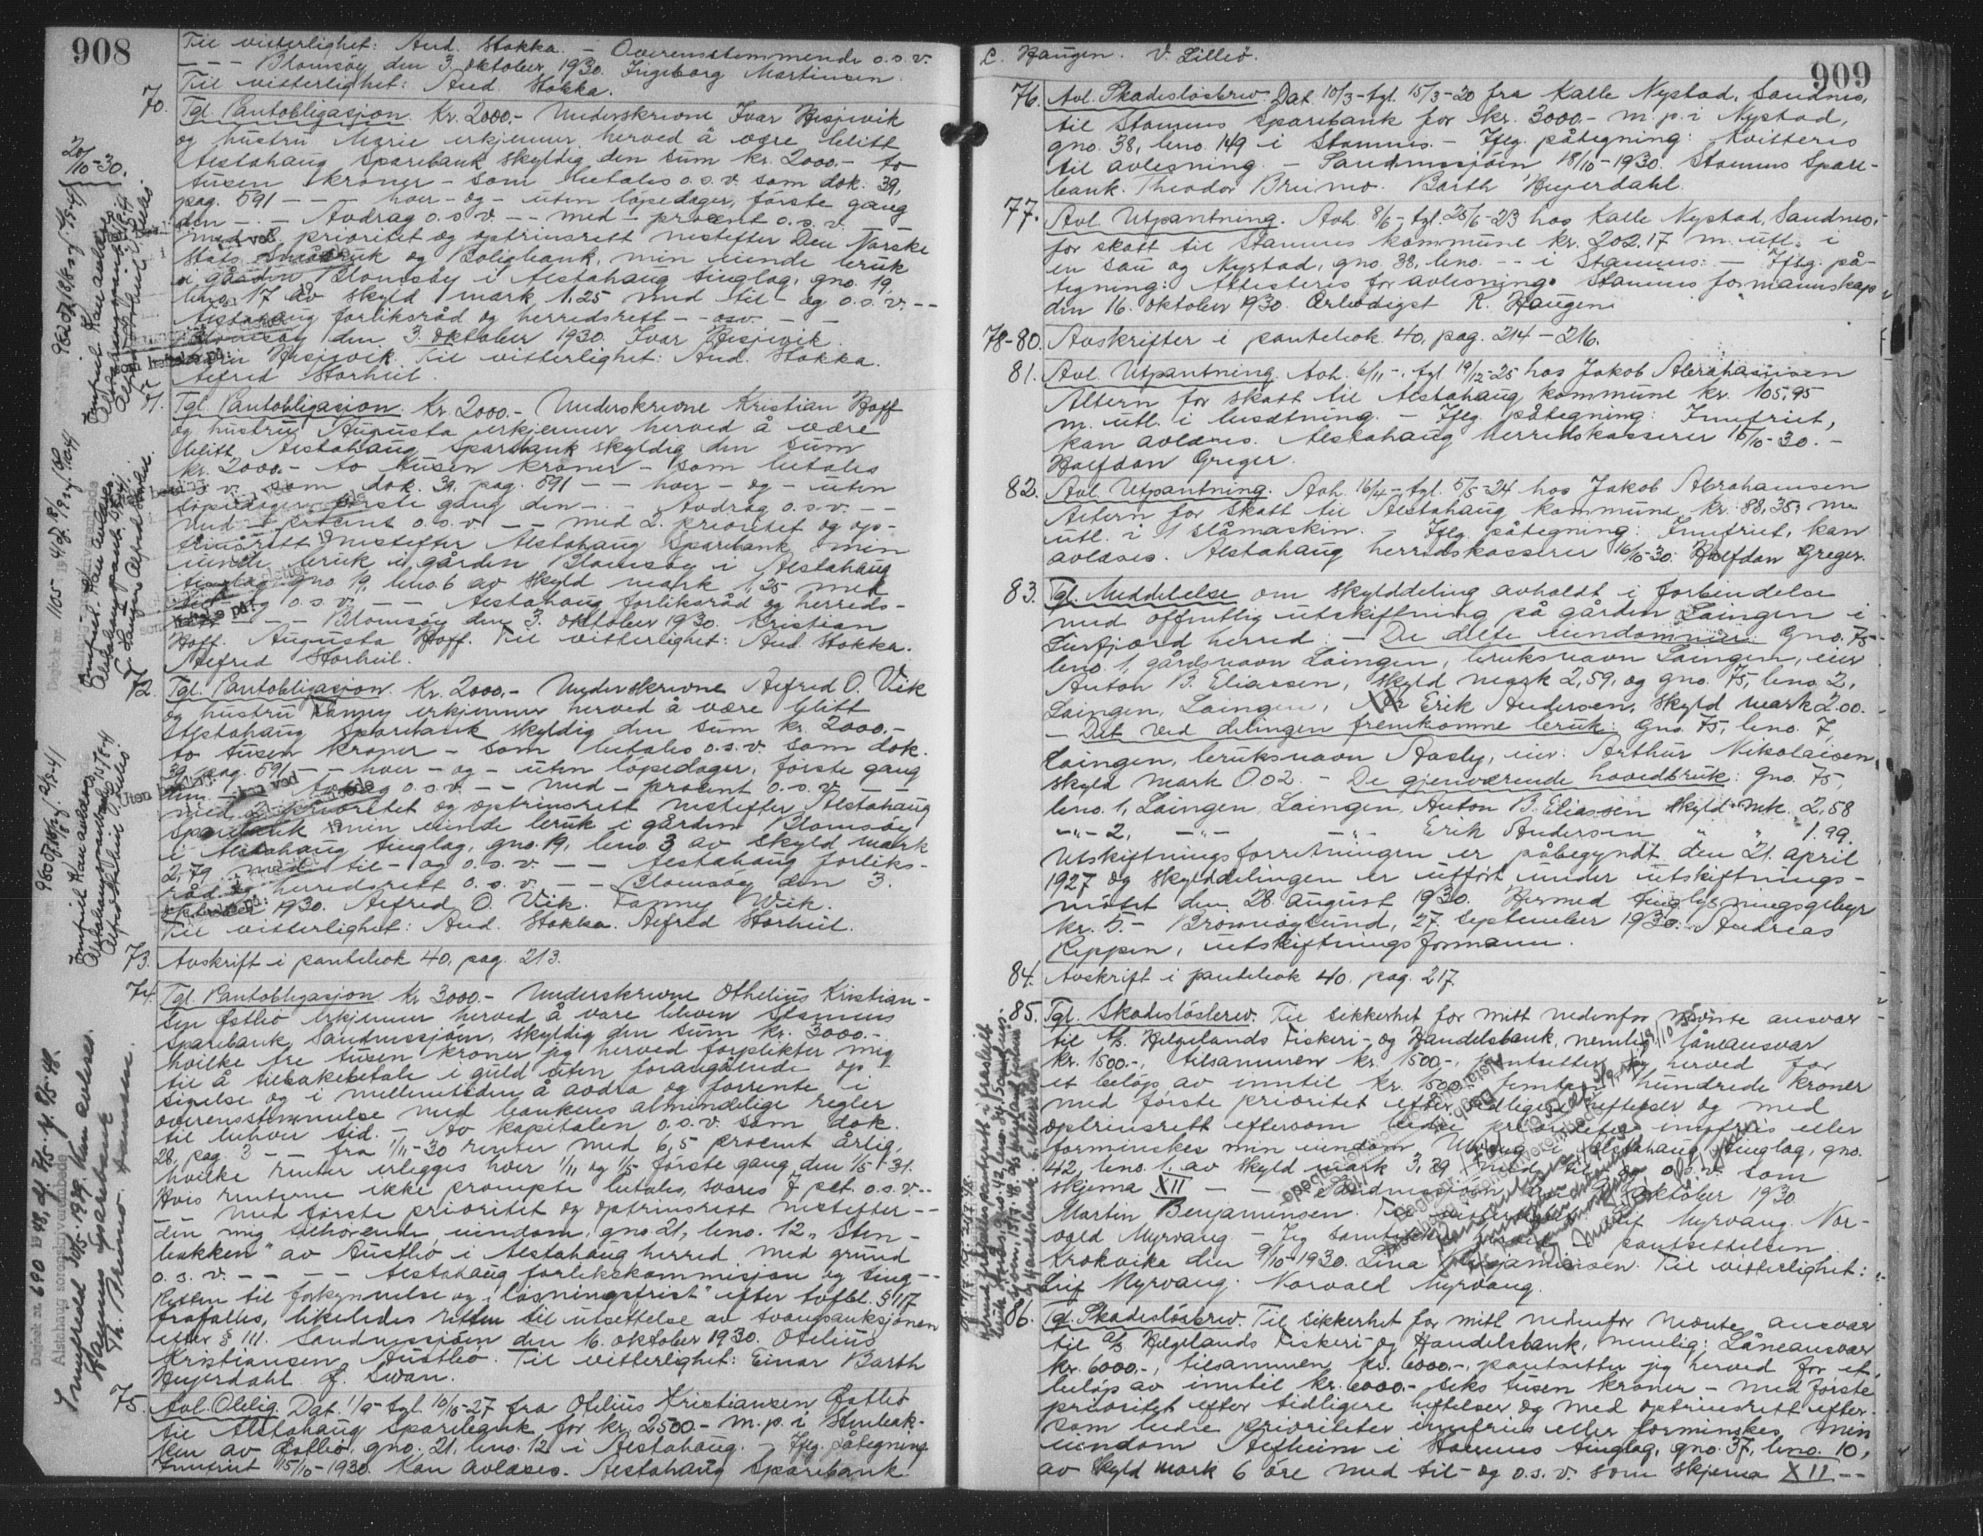 908
Til vitterlighet: And. Stokka. – Overensstemmende o.s.v.
– – – Blomsøy den 3. oktober 1930. Ingeborg Martinsen.
Til vitterlighet: And. Stokka.
70. Tgl. Pantobligasjon. Kr. 2000.- Underskrivne Ivar Hesjevik
og hustru Marie erkjenner herved å være blitt
Alstahaug Sparebank skyldig den sum kr. 2000.- to
tusen kroner – som betales o.s.v. som dok. 39,
pag. 591 – – – hver – og – uten løpedager, første gang
den – – – Avdrag o.s.v. – – med – procent o.s.v.
med 2 prioritet og optrinsrett nestefter Den Norske
Stats Småbruk og Boligbank, min eiende bruk
i gården Blomsøy i Alstahaug tinglag, gno. 19,
bno. 17 av skyld mark 1.25 med til – og o.s.v. – –
Alstahaug forliksråd og herredsrett – – o.s.v. – –
Blomsøy den 3. oktober 1930. Ivar Hesjevik.
Hesjevik. Til vitterlighet: And. Stokka.
Alfred Storheil.
71. Tgl. Pantobligasjon. Kr. 2000.- Underskrivne Kristian Hoff
og hustru Augusta erkjenner herved å være
blitt Alstahaug Sparebank skyldig den sum
kr. 2000.- to tusen kroner – som betales
o.s.v. som dok. 39, pag. 591 – – hver – og – uten
løpedager første gang den – – Avdrag o.s.v. – –
med – procent o.s.v. – – med 2. prioritet og op-
trinsrett nestefter Alstahaug Sparebank min
eiende bruk i gården Blomsøy i Alstahaug
tinglag gno. 19, bno. 6 av skyld mark 1,25 med
til – og o.s.v. – – Alstahaug forliksråd og herreds-
rett – – – Blomsøy den 3. oktober 1930. Kristian
Hoff. Augusta Hoff. Til vitterlighet: And. Stokka.
Alfred Storheil.
72. Tgl. Pantobligasjon. Kr. 2000,- Underskrivne Alfred O. Vik
og hustru Fanny erkjenner herved å være blitt
Alstahaug Sparebank skyldig den sum kr. 2000.-
to tusen kroner – som betales o.s.v. som dok.
39, pag. 591 – – hver – og – uten løpedager, første gang
den – – Avdrag o.s.v. – – med – procent o.s.v. – –
med 2 prioritet og optrinsrett nestefter Alstahaug
Sparebank min eiende bruk i gården Blomsøy
i Alstahaug tinglag, gno. 19, bno. 3 av skyld mark
2,79 med til – og o.s.v. – – Alstahaug forliks-
råd og herredsrett o.s.v. – – Blomsøy den 3.
oktober 1930. Alfred O. Vik. Fanny Wiik.
Til vitterlighet: And. Stokka. Alfred Storheil.
73. Avskrift i pantebok 40, pag. 213.
74. Tgl. Pantobligasjon Kr 3000.- Underskrivne Othelius Kristian-
sen Østbø erkjenner herved å være bleven Stamnes
Sparebank, Sandnessjøen, skyldig den sum kr. 3000.-
hvilke tre tusen kroner jeg herved forplikter mig
til å tilbakebetale i guld uten foregående op-
sigelse og i mellemtiden å avdra og forrente i
overensstemmelse med bankens almindelige regler
til enhver tid. – Av kapitalen o.s.v. som dok.
28, pag. 3 – – fra 1/11-30 renter med 6,5 procent årlig,
hvilke renter erlegges hver 1/11 og 1/5 første gang den 1/5-31.
Hvis renterne ikke prompte betales, svares 7 pct. o.s.v. –
– med første prioritet og optrinsrett nestefter – –
den mig tilhørende eiendom, gno 21, bno. 12 „ Sten-
bakken" av Austbø i Alstahaug herred med grund
o.s.v. – – – – Alstahaug forlikskommisjon og ting-
retten til forkynnelse og „løsningsfrist" efter tvfbl. § 117
frafalles, likeledes retten til utsettelse av tvangsauksjonen
efter § 111. Sandnessjøen den 16. oktober 1930. Otelius
Kristiansen Austbø. Til vitterlighet: Einar Barth
Heyerdahl. J. Swan.
75. Avl. Oblig. Dat. 1/9 – tgl. 10/10-27 fra Otelius Kristiansen Østbø
til Alstahaug Sparebank for kr. 2500.- m.p. i Stenbak-
ken av Østbø, gno. 21, bno. 12 i Alstahaug. – Iflg. påtegning
Innfriet 15/10-1930. Kan avlæses. Alstahaug Sparebank.
909
L. Haugen. V. Lillø.
76. Avl. Skadesløsbrev. Dat. 10/3 – tgl. 15/3-20 fra Kalle Nystad, Sandnes,
til Stamnes Sparebank for kr. 3000.- m.p. i Nystad,
gno. 38, bno. 149 i Stamnes. – Iflg. påtegning: Kvitteres
til avlesning. – Sandnessjøen 18/10-1930. Stamnes Spare-
bank. Theodor Brunvo. Barth Heyerdahl.
77. Avl. Utpantning. Avh. 8/6, tgl. 25/6-23 hos Kalle Nystad, Sandnes,
for skatt til Stamnes kommune kr. 202.17 m. utl. i
en sau og Nystad, gno. 38, bno. – – i Stamnes. – Iflg. på-
tegning: Attesteres for avlesning. Stamnes formannskap
den 16. oktober 1930. Ærbødigst K. Haugen
78-80. Avskrifter i pantebok 40, pag. 214 – 216.
81. Avl. Utpantning. Avh. 6/11 – tgl. 19/12-25 hos Jakob Abrahamsen
Altern for skatt til Alstahaug kommune kr. 105,95
m. utl. i besætning. – Iflg. påtegning: Innfriet,
kan avlæses. Alstahaug herredskasserer 16/10-30. –
Halfdan Greger.
82. Avl. Utpantning. Avh. 16/4 – tgl. 5/5-24 hos Jakob Abrahamsen
Altern for skatt til Alstahaug kommune kr. 88,35, m.
utl. i 1 slåmaskin. – Iflg. påtegning: Innfriet, kan
avlæses. Alstahaug herredskasserer 16/10-30. Halfdan Greger.
83. Tgl. Meddelelse om skylddeling avholdt i forbindelse
med offentlig utskiftning på gården Laingen i
Leirfjord herred. – De delte eiendommer: Gno. 75
bno. 1, gårdsnavn Laingen, bruksnavn Laingen, eier
Anton B. Eliassen, skyld mark 2,59, og gno. 75, bno. 2,
Laingen, Laingen, Erik Andersen, skyld mark 2.00.
– Det ved delingen fremkomne bruk: Gno. 75, bno. 7,
Laingen, bruksnavn Aasly, eier: Arthur Nikolaisen
skyld mark 0.02. – De gjenværende hovedbruk: Gno. 75,
bno. 1, Laingen, Laingen, Anton B. Eliassen skyld mk. 2,58
-"- 2, -"- -"- Erik Andersen " " 1.99.
Utskiftningsforretningen er påbegyndt den 21. april
1927 og skylddelingen er utført under utskiftnings-
møtet den 28. august 1930. Hermed tinglysningsgebyr
kr. 5.- Brønnøysund, 27. september 1930. Andreas
Reppen, utskiftningsformann.
84. Avskrift i pantebok 40. pag. 217.
85. Tgl. Skadesløsbrev. Til sikkerhet for mitt nedenfor nevnte ansvar
til A/S. Helgelands Fiskeri- og Handelsbank, nemlig: Låneansvar
kr. 1500.-, tilsammen kr. 1500.-, pantsetter jeg herved for
et beløp av inntil kr. 1500.- femten hundrede kroner
med første prioritet efter tidligere heftelser og med
optrinsrett eftersom bedre prioriteter innfris eller
forminskes min eiendom i Alstahaug tinglag, gno.
42, bno. 1, av skyld mark 3,89 med til- og o.s.v. som
skjema XII – – – Sandnessjøen den 9 oktober 1930
Martin Benjaminsen. Til vitterlighet: Leif Myrvang. Nor-
vald Myrvang – Jeg samtykker i pantsettelsen
Krokvika den 9/10-1930. Lina Benjaminsen. Til vitterlighet:
Leif Myrvang. Norvald Myrvang.
86. Tgl. Skadesløsbrev. Til sikkerhet for mitt nedenfor nevnte ansvar
til A/S Helgelands Fiskeri- og Handelsbank, nemlig: Låneansvar
kr. 6000.-, tilsammen kr. 6000.-, pantsetter jeg herved for et
beløp av inntil kr. 6000.- seks tusen kroner – med første
prioritet efter tidligere heftelser og med optrinsrett efter-
som bedre prioriteter innfries eller forminskes min
eiendom Alfheim i Stamnes tinglag, gno. 37, bno. 10,
av skyld mark 6 øre med til- og o.s.v. som skjema XII. – –